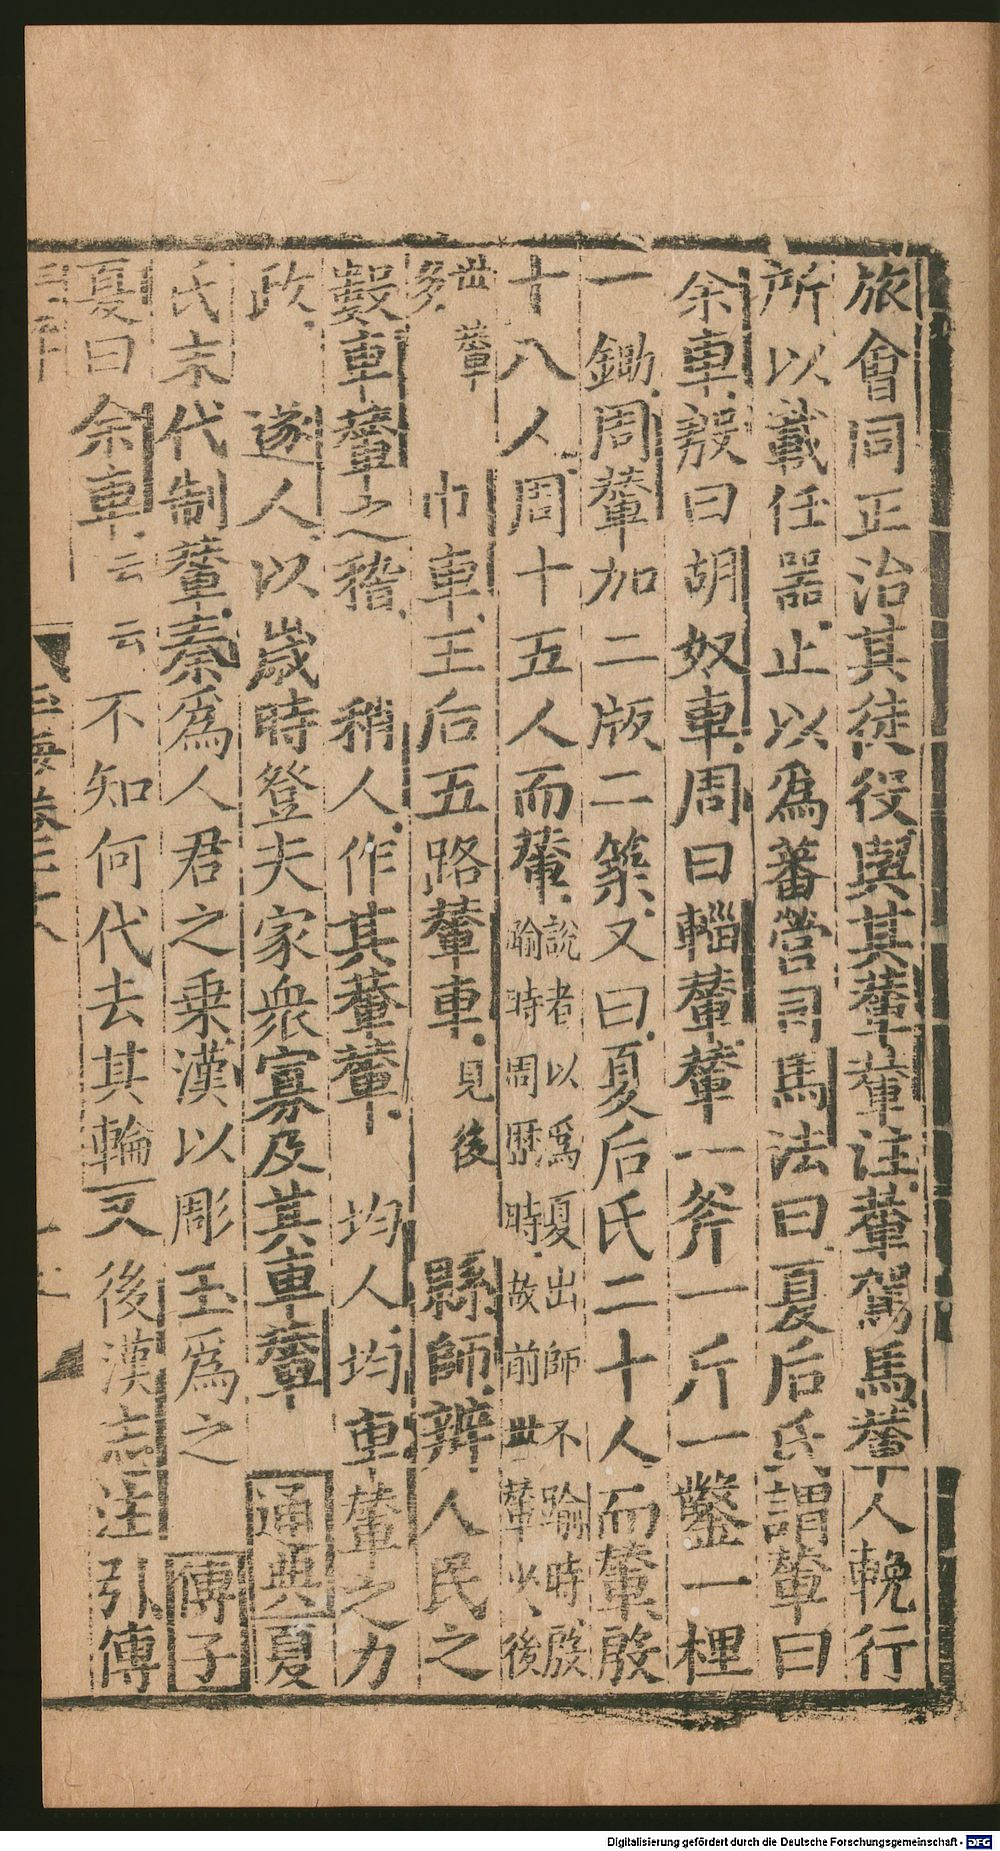 旅會同正治其徒役與其輦輂注輂駕馬輦人輓行
所以載任器止以爲蕃營司馬法曰夏后氏謂輦曰
余車殷曰胡奴車周曰輜輦輦一斧一斤一鑿一梩
一鋤周輦加二版二築又曰夏后氏二十人而輦殷
十八人周十五人而輦說者以爲夏出師不踰時殷
踰時周歷時故前世輦少後
世輦
多 巾車王后五路輦車見後 縣師辨人民之
數車輦之稽 稍人作其輂輦 均人均車輦之力
政 遂人以歲時登夫家衆寡及其車輦 通典夏
氏末代制輦秦爲人君之乗漢以彫玉爲之 傅子
夏曰余車云云不知何代去其輪 又後漢志注引傅
Digitalisierung gefördert durch die Deutsche Forschungsgemeinschaft - DFG